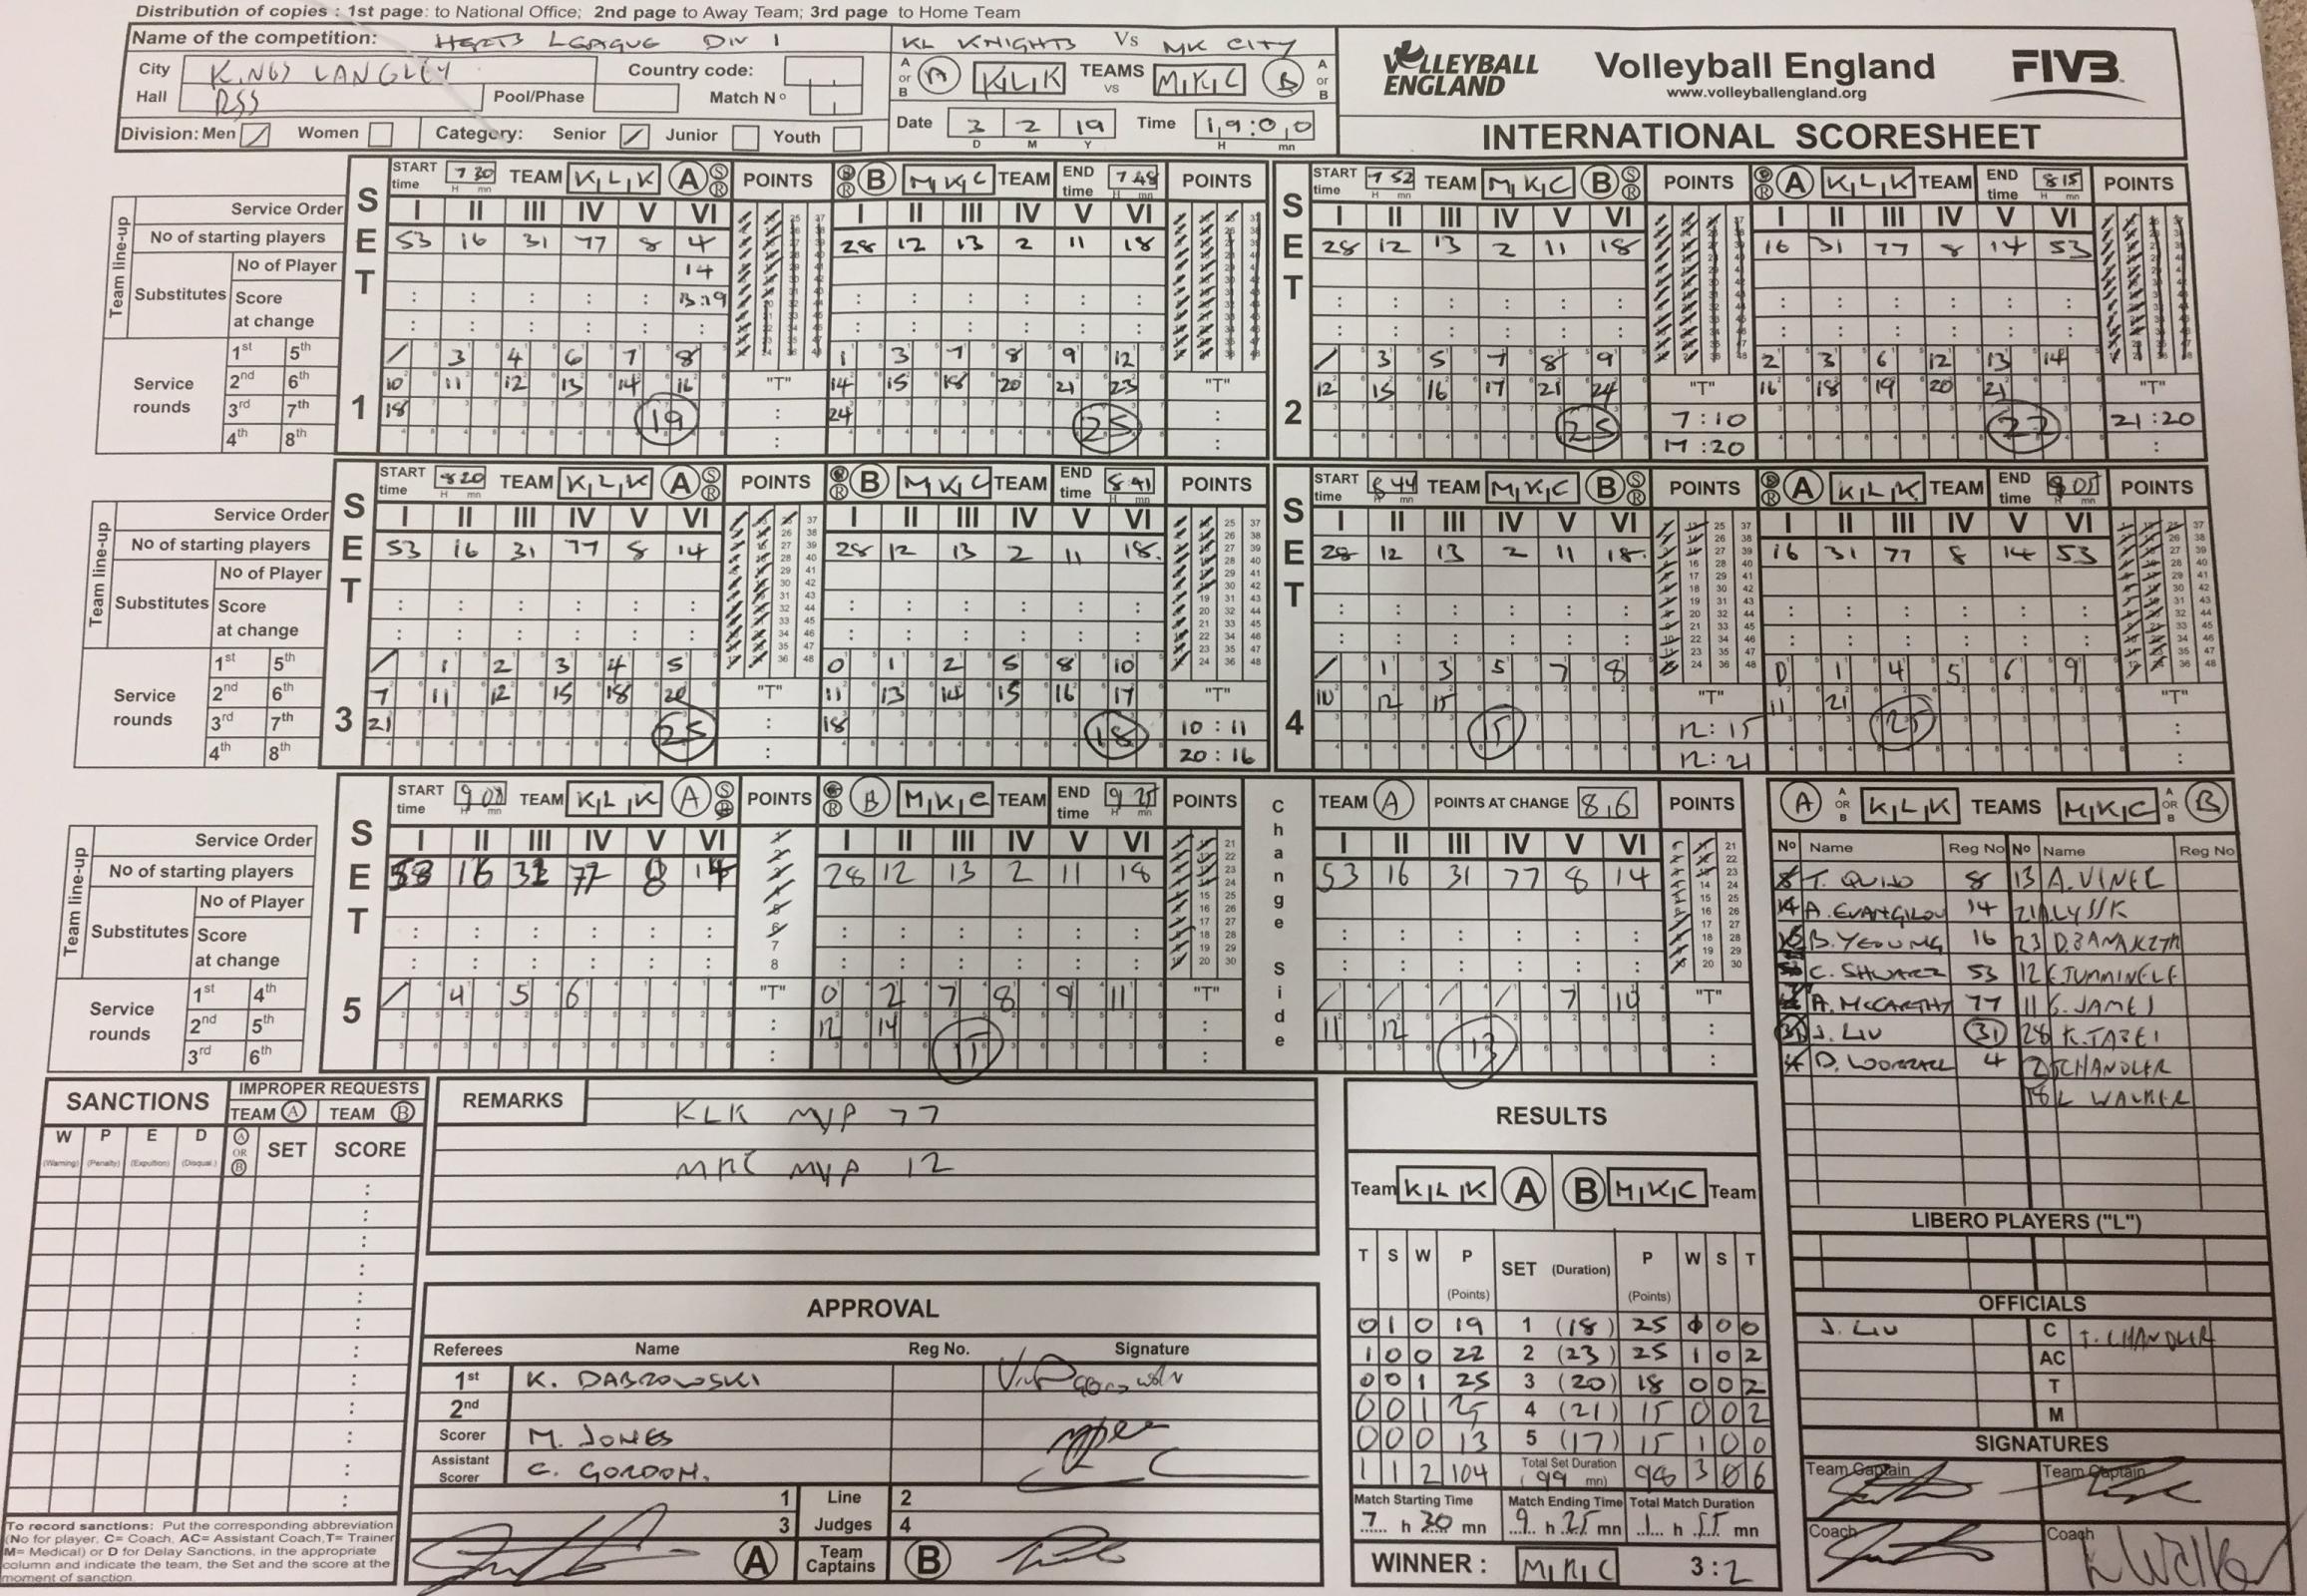 Distribution of copies : 1st page: to National Office; 2nd page to Away Team; 3rd page to Home Team
Name of the competition: HERTS LEAGUE DIV 1 KL KNIGHTS Vs MK CITY
City KINGS LANGLEY Country code:
Hall RSS Pool/Phase Match Nº
A or B A KLK TEAMS vs MKC B A or B
Division: Men / Women Category: Senior / Junior Youth
Date 3 2 19 Time 19:00
D M Y H mn
VOLLEYBALL ENGLAND Volleyball England FIVB
www.volleyballengland.org
INTERNATIONAL SCORESHEET
SET 1
START time 7 30 TEAM KLK A S R POINTS S R B MKC TEAM END time 7 48 POINTS
Service Order I II III IV V VI I II III IV V VI
Team line-up
No of starting players 53 16 31 77 8 4 28 12 13 2 11 18
Substitutes No of Player 14
Score at change 13:19
Service rounds
1st 5th / 3 4 6 7 8 1 3 7 8 9 12
2nd 6th 10 11 12 13 14 16 "T" 14 15 18 20 21 23 "T"
3rd 7th 18 19 24 25
4th 8th
SET 2
START time 7 52 TEAM MKC B S R POINTS S R A KLK TEAM END time 8 15 POINTS
I II III IV V VI I II III IV V VI
28 12 13 2 11 18 16 31 77 8 14 53
/ 3 5 7 8 9 2 3 6 12 13 14
12 15 16 17 21 24 "T" 16 18 19 20 21 "T"
25 7:10 22 21:20
17:20
SET 3
START time 8 20 TEAM KLK A S R POINTS S R B MKC TEAM END time 8 41 POINTS
Service Order I II III IV V VI I II III IV V VI
Team line-up
No of starting players 53 16 31 77 8 14 28 12 13 2 11 18
Substitutes No of Player
Score at change
Service rounds
1st 5th / 1 2 3 4 5 0 1 2 5 8 10
2nd 6th 7 11 12 15 18 20 "T" 11 13 14 15 16 17 "T"
3rd 7th 21 25 18 18 10:11
4th 8th 20:16
SET 4
START time 8 44 TEAM MKC B S R POINTS S R A KLK TEAM END time 9 05 POINTS
I II III IV V VI I II III IV V VI
28 12 13 2 11 18 16 31 77 8 14 53
/ 1 3 5 7 8 0 1 4 5 6 9
10 12 15 "T" 11 21 "T"
15 12:15 25
12:21
SET 5
START time 9 08 TEAM KLK A S R POINTS S R B MKC TEAM END time 9 25 POINTS
Service Order I II III IV V VI I II III IV V VI
Team line-up
No of starting players 53 16 31 77 8 14 28 12 13 2 11 18
Substitutes No of Player
Score at change
Service rounds
1st 4th / 4 5 6 "T" 0 2 7 8 9 11 "T"
2nd 5th 12 14 15
3rd 6th
Change Side
TEAM A POINTS AT CHANGE 8,6 POINTS
I II III IV V VI
53 16 31 77 8 14
/ / / / 7 10 "T"
11 12 13
A A OR B KLK TEAMS MKC A OR B B
Nº Name Reg No Nº Name Reg No
8 T. QUID 8 13 A. VINER
14 A. EVANGILOU 14 21
16 B. YEOUNG 16 23
53 C. SHWARZ 53 12
77 A. McCARTHY 77 11 G. JAMES
31 J. LIU 31 28 K. TAZEI
4 4 2 T CHANDLER
18 L WALKER
LIBERO PLAYERS ("L")
OFFICIALS
J. LIU C T. CHANDLER
AC
T
M
SIGNATURES
Team Captain Team Captain
Coach Coach
SANCTIONS IMPROPER REQUESTS
TEAM A TEAM B
W P E D A OR B SET SCORE
(Warning) (Penalty) (Expultion) (Disqual.)
To record sanctions: Put the corresponding abbreviation
(No for player, C= Coach, AC= Assistant Coach, T= Trainer
M= Medical) or D for Delay Sanctions, in the appropriate
column and indicate the team, the Set and the score at the
moment of sanction.
REMARKS KLK MVP 77
MKC MVP 12
APPROVAL
Referees Name Reg No. Signature
1st K. DABROWSKI
2nd
Scorer M. JONES
Assistant Scorer C. GORDON.
1 Line 2
3 Judges 4
A Team Captains B
RESULTS
Team KLK A B MKC Team
T S W P (Points) SET (Duration) P (Points) W S T
0 1 0 19 1 (18) 25 0 0
1 0 0 22 2 (23) 25 1 0 2
0 0 1 25 3 (20) 18 0 0 2
0 0 1 25 4 (21) 15 0 0 2
0 0 0 13 5 (17) 15 1 0 0
1 1 2 104 Total Set Duration (99 mn) 98 3 0 6
Match Starting Time Match Ending Time Total Match Duration
7 h 30 mn 9 h 25 mn 1 h 55 mn
WINNER : MKC 3:2